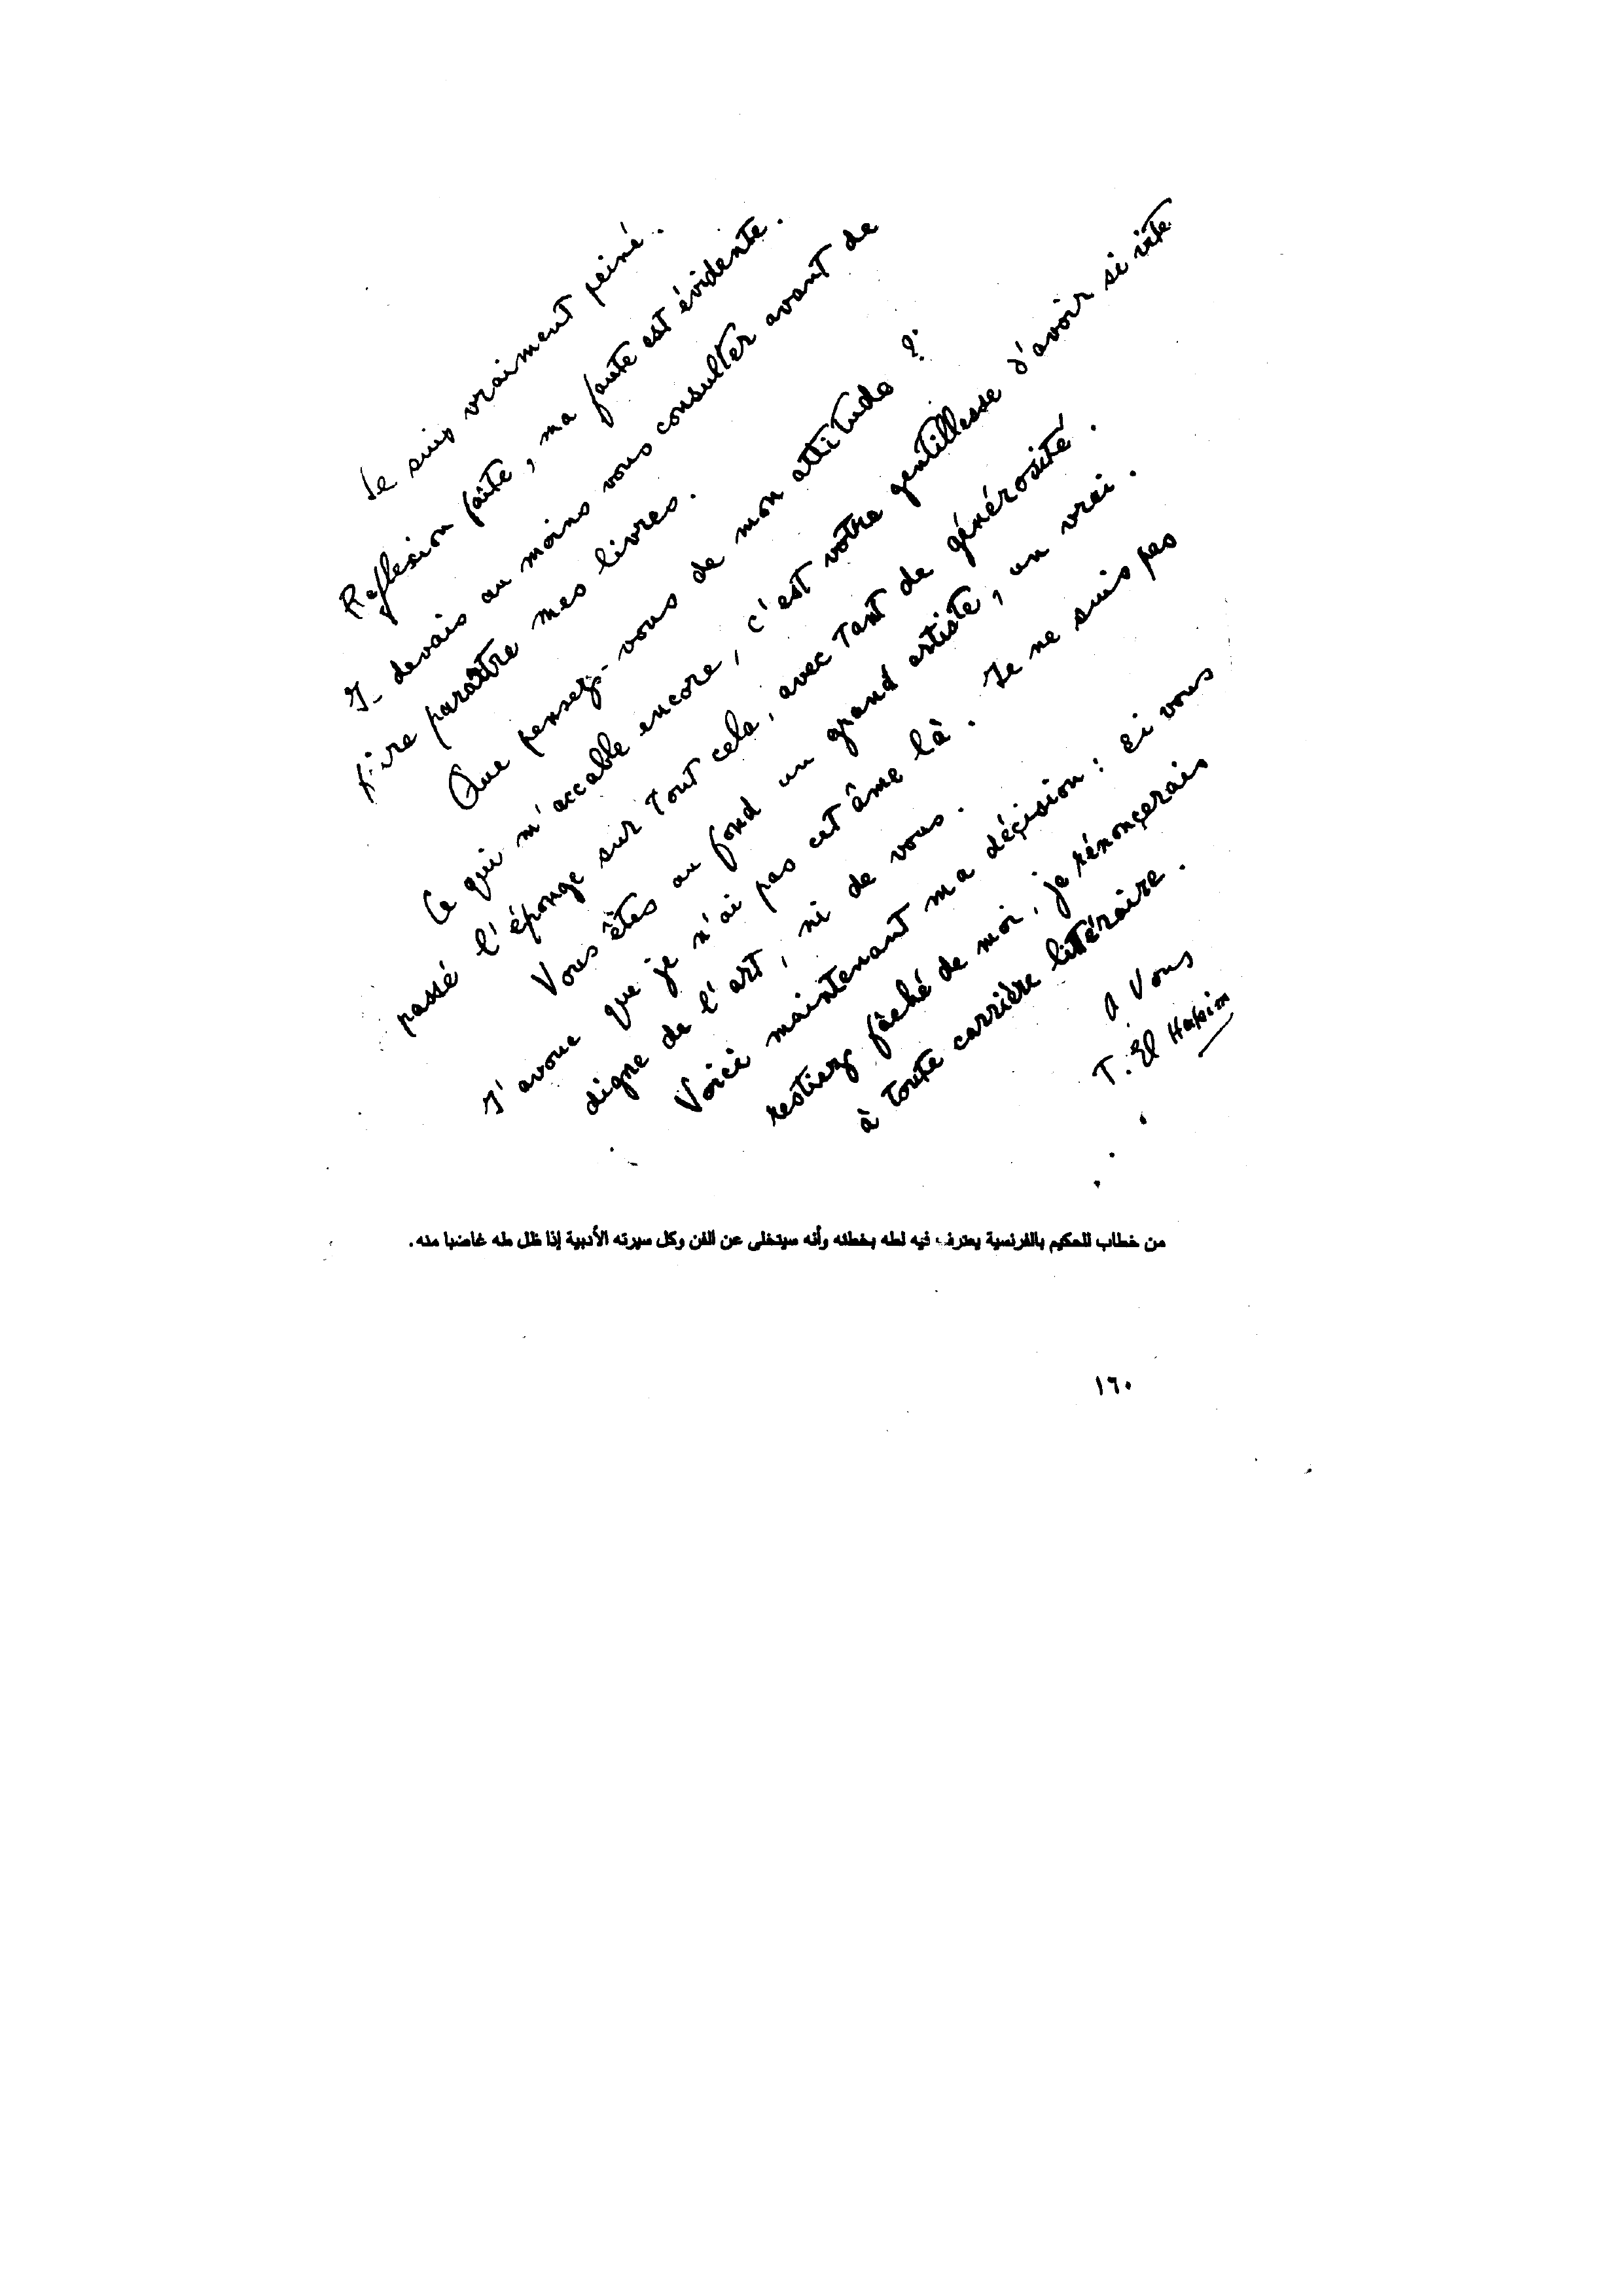 Je suis vraiment peiné.
Reflexion faîte, ma faute est évidente.
Je devais au moins vous consulter avant de
faire paraître mes livres.
Que pensez-vous de mon attitude ?
Ce qui m'accable encore, c'est votre gentillesse d'avoir si vite
passé l'éponge sur tout cela, avec tant de générosité.
Vous êtes au fond un grand artiste, un vrai.
J'avoue que je n'ai pas cet âme là. Je ne suis pas
digne de l'art, ni de vous.
Voici maintenant ma déçision : si vous
restiez fâché de moi, je rénonçerais
à toute carrière littéraire.
A Vous
T. El Hakim
من خطاب للحكيم بالفرنسية يعترف فيه لطه بخطئه وأنه سيتخلى عن الفن وكل سيرته الأدبية إذا ظل طه غاضبا منه.
١٦٠